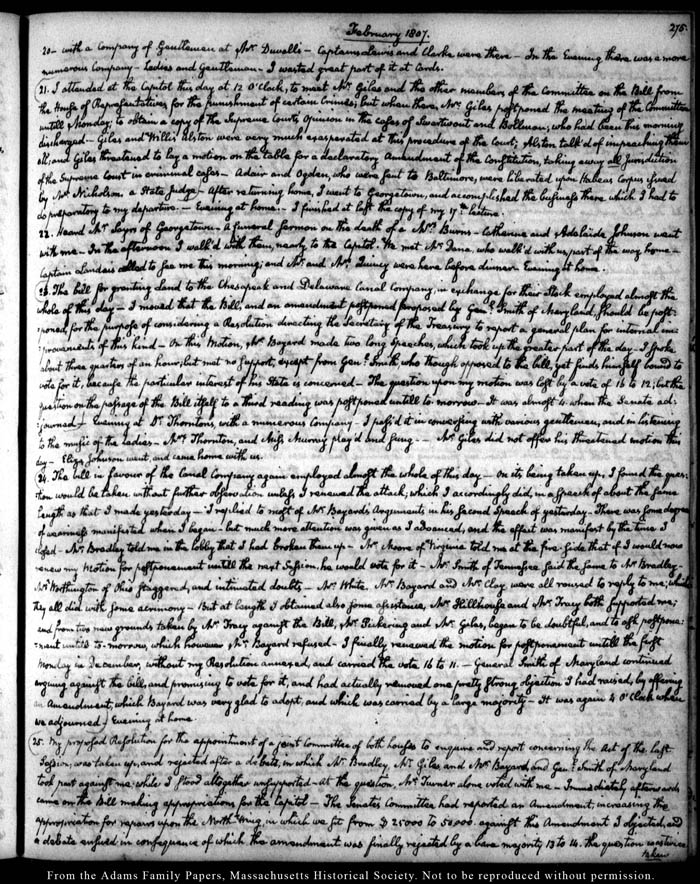 February 1807.
275.
20 - with a Company of Gentlemen at Mr. Duvall's - Captains Lewis and Clarke were there - In the Evening there was a more
numerous Company - Ladies and Gentlemen - I wasted great part of it at Cards.
21. I attended at the Capitol this day at 12 O'Clock, to meet Mr. Giles and the other members of the Committee on the Bill from
the House of Representatives for the punishment of certain Crimes; but when there, Mr. Giles postponed the meeting of the Committee
untill Monday, to obtain a copy of the Supreme Court's opinion in the cases of Swartwout and Bollman; who had been this morning
discharged - Giles and Willis Alston were very much exasperated at this procedure of the Court; Alston talk'd of impeaching them
all; and Giles threatened to lay a motion on the table for a declaratory Amendment of the Constitution, taking away all Jurisdiction
of the Supreme Court in criminal cases - Adair and Ogden, who were sent to Baltimore, were liberated upon Habeas Corpus issued
by Mr. Nicholson a State Judge - After returning home, I went to Georgetown, and accomplished the business there which I had to
do preparatory to my departure - Evening at home - I finished at last the copy of my 17th. lecture.
22. Heard Mr. Sayrs of Georgetown - A funeral Sermon on the death of a Mrs. Burns - Catherine and Adelaide Johnson went
with me - In the afternoon I walk'd with them, nearly to the Capitol. We met Mr. Dana, who walk'd with us part of the way home -
Captain Landais called to see me this morning; and Mr. and Mrs. Quincy were here before dinner - Evening at home.
23. The bill for granting Land to the Chesapeak and Delaware Canal Company, in exchange for their Stock employed almost the
whole of this day - I moved that the Bill, and an amendment postponed proposed by Genl. Smith of Maryland, should be post-
=poned, for the purpose of considering a Resolution directing the Secretary of the Treasury to report a general plan for internal im=
=provements of this kind - On this Motion, Mr. Bayard made two long Speeches, which took up the greater part of the day - I spoke
about three quarters of an hour, but met no support, except from Genl. Smith who though opposed to the bill, yet finds himself bound to
vote for it, because the particular interest of his State is concerned - The question upon my motion was lost by a vote of 16 to 12; but the
question on the passage of the Bill itself to a third reading was postponed untill to-morrow - It was almost 4 when the Senate ad=
=journed - Evening at Dr. Thornton's, with a numerous Company - I pass'd it in conversing with various gentlemen, and in listening
to the music of the Ladies - Mrs. Thornton, and Miss Murray play'd and sung - Mr. Giles did not offer his threatened motion this
day - Eliza Johnson went, and came home with us.
24. The bill in favour of the Canal Company again employed almost the whole of this day - On its being taken up, I found the ques=
tion would be taken without further observation unless I renewed the attack, which I accordingly did, in a speech of about the same
length as that I made yesterday - I replied to most of Mr. Bayard's Arguments in his second Speech of yesterday - There was some degree
of weariness manifested when I began - but much more attention was given as I advanced, and the effect was manifest by the time I
closed - Mr. Bradley told me in the lobby that I had broken them up - Mr. Moore of Virginia told me at the fire side that if I would now
renew my Motion for postponement untill the next Session, he would vote for it - Mr. Smith of Tennessee said the same to Mr. Bradley -
Mr. Worthington of Ohio staggered, and intimated doubts - Mr. White, Mr. Bayard and Mr. Clay were all roused to reply to me; which
they all did with some acrimony - But at length I obtained also some assistance, Mr. Hillhouse and Mr. Tracy both supported me;
and from two new grounds taken by Mr. Tracy against the Bill, Mr. Pickering and Mr. Giles, began to be doubtful, and to ask postpone=
=ment untill to-morrow, which however Mr. Bayard refused - I finally renewed the motion for postponement untill the first
Monday in December, without my Resolution annexed, and carried the vote 16 to 11. - General Smith of Maryland continued
arguing against the bill, and promising to vote for it, and had actually removed one pretty strong objection I had raised, by offering
an Amendment, which Bayard was very glad to adopt, and which was carried by a large majority - It was again 4 O'Clock when
we adjourned - Evening at home.
25. My proposed Resolution for the appointment of a joint Committee of both houses to enquire and report concerning the Act of the last
Session, was taken up, and rejected after a debate, in which Mr. Bradley, Mr. Giles and Mr. Bayard and Genl. Smith of Maryland
took part against me, while I stood altogether unsupported - At the question Mr. Turner alone voted with me - Immediately afterwards
came on the Bill making appropriations for the Capitol - The Senate's Committee had reported an Amendment, increasing the
appropriation for repairs upon the North Wing, in which we sit from $25000 to 50000. against this Amendment I objected, and
a debate ensued in consequence of which the amendment was finally rejected by a bare majority 13 to 14. The question
taken
From the Adams Family Papers, Massachusetts Historical Society. Not to be reproduced without permission.